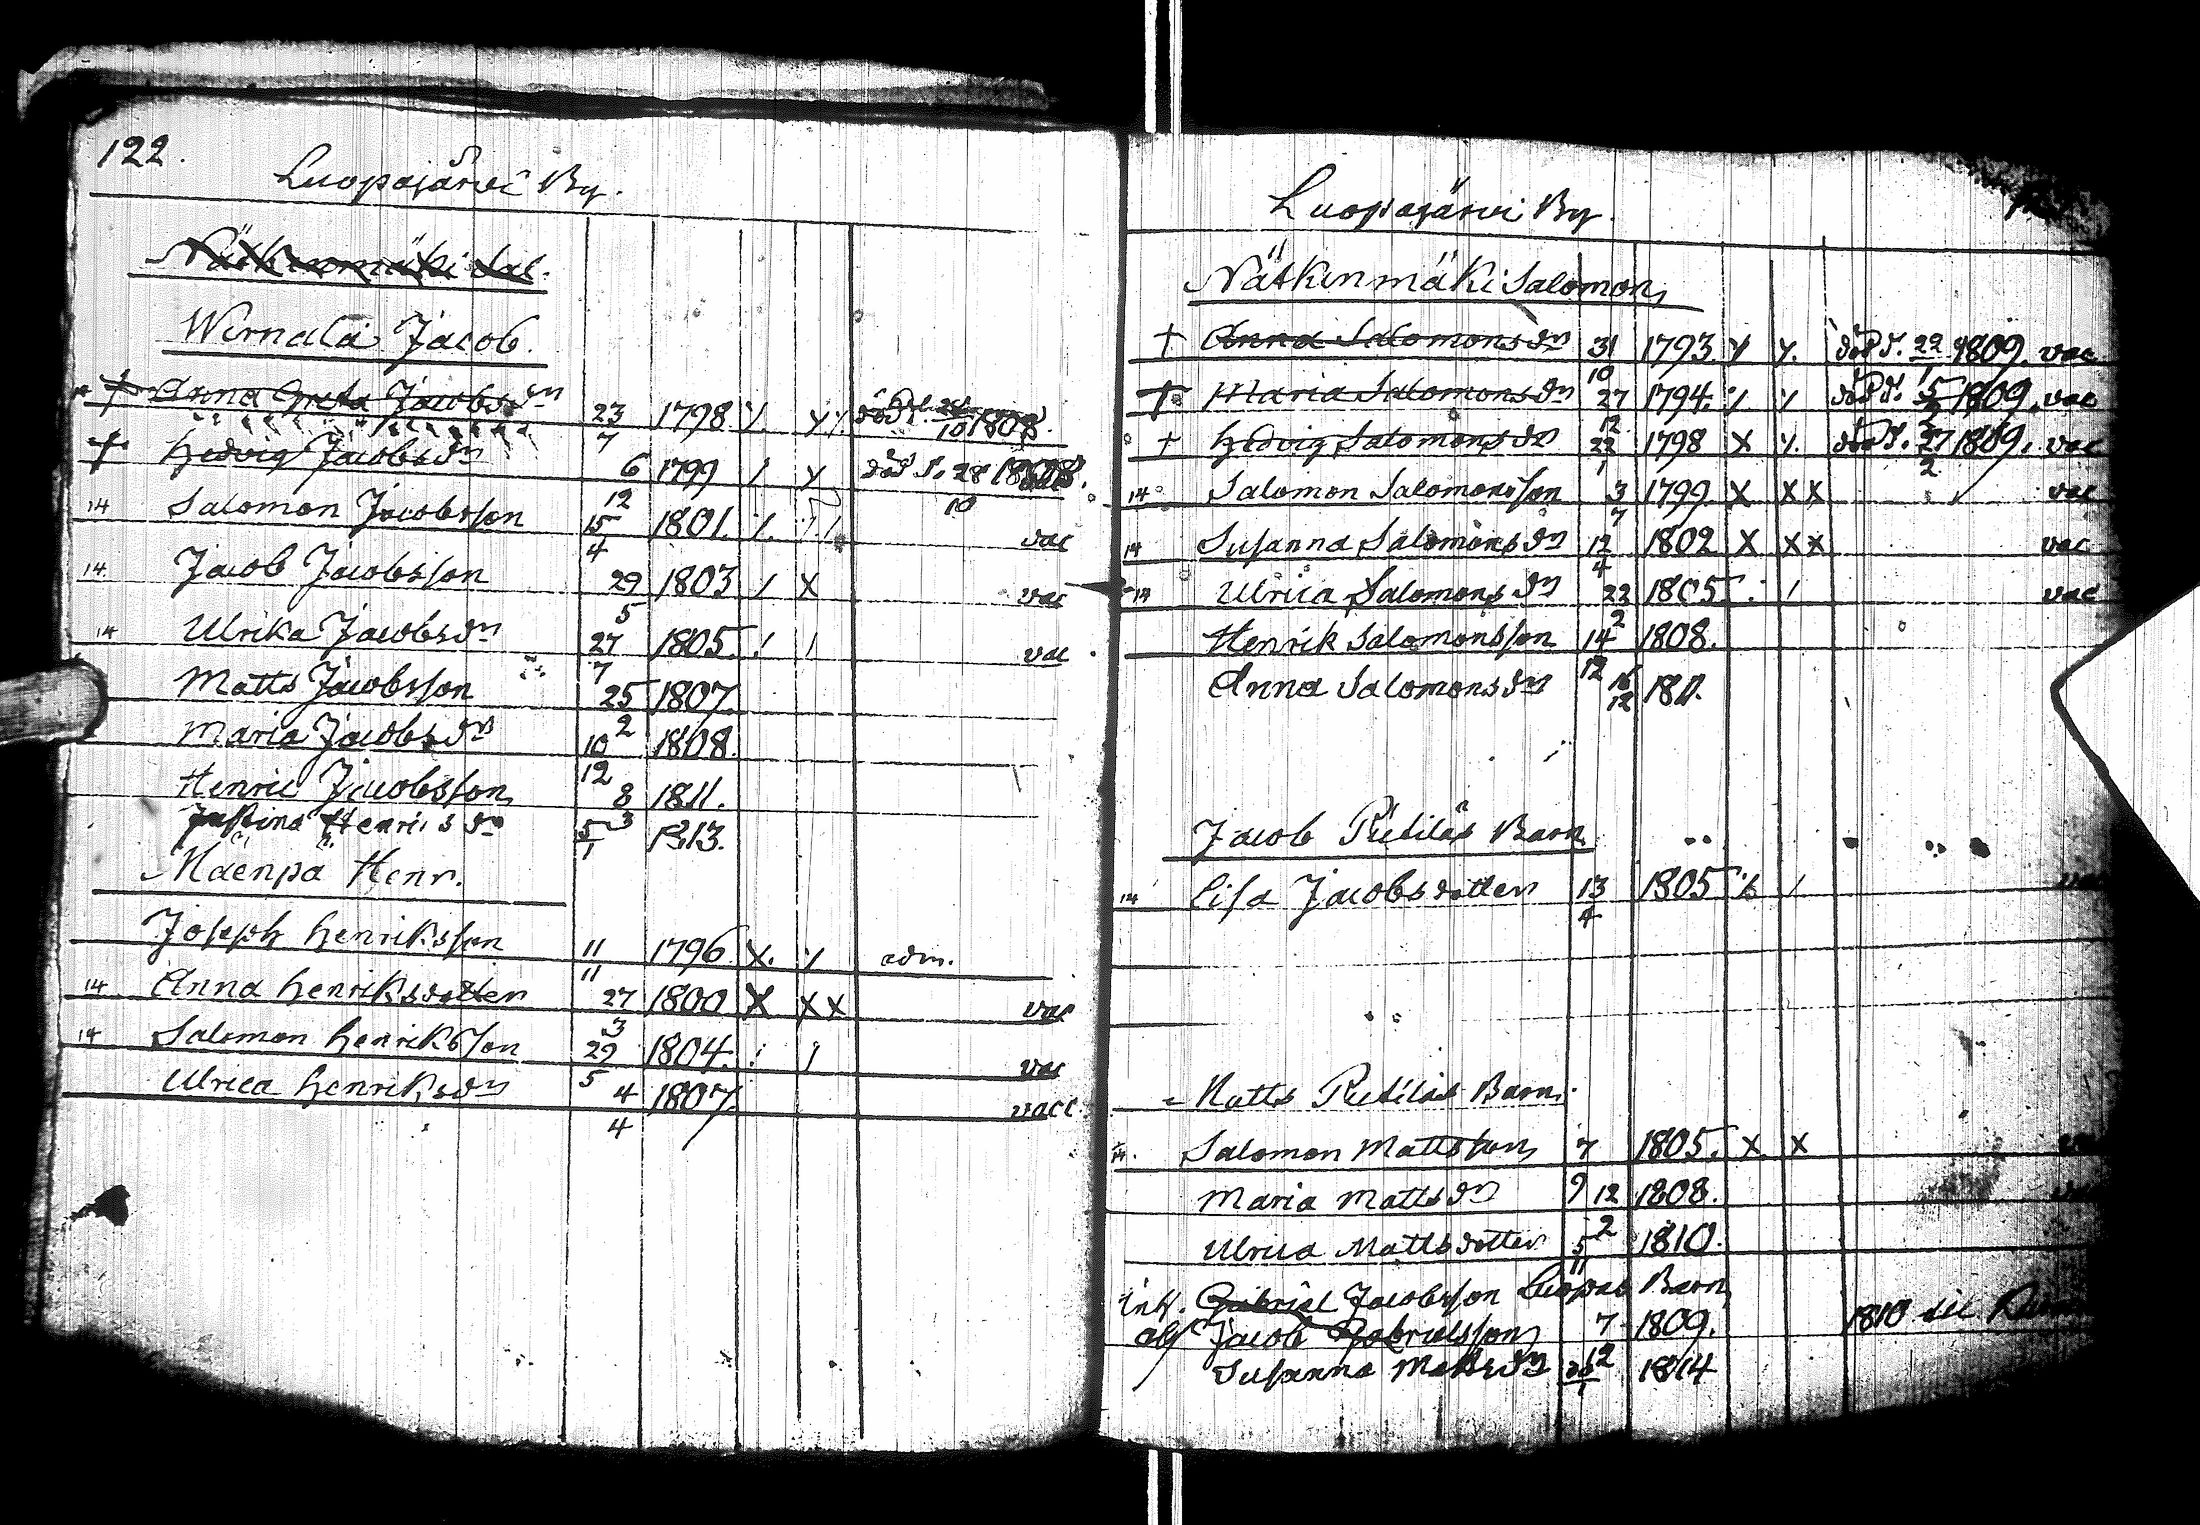 122.
Luopajärvi By.
Nätkenmäki Sal.
Wernala Jacob.
+ Anna Greta Jacobsdr 23/7 1798 död d. 1808
+ Hedvig Jacobsdr 6/12 1799 död d. 28/10 1808.
14 Salomon Jacobsson 15/4 1801. vac
14. Jacob Jacobsson 29/5 1803 / X vac
14 Ulrika Jacobsdr 27/7 1805. / / vac
Matts Jacobsson 25/2 1807.
Maria Jacobsdr 10/12 1808.
Henric Jacobsson 8/3 1811.
Justina Henricsdr 5/1 1813.
Mäenpä Henr.
Joseph Henriksson 11/11 1796. X. adm.
14 Anna Henriksdotter 27/3 1800 X XX vac
14 Salomon Henriksson 29/5 1804. / / vac
Ulrica Henriksdr 4/4 1807. vacc
Luopajärvi By.
Nätkenmäki Salomon
+ Anna Salomonsdr 31/10 1793. död d. 22/1 1809. vac
+ Maria Salomonsdr 27/12 1794. död d. 1809. vac
+ Hedvig Salomonsdr 22/1 1798 X död d. 27/2 1809. vac
14 Salomon Salomonsson 3/7 1799. X XX vac
14 Susanna Salomonsdr 12/4 1802 X XX vac
14 Ulrica Salomonsdr 22/2 1805 / vac
Henrik Salomonsson 14/12 1808.
Anna Salomonsdr 16/12 1811.
Jacob Barn
14 Lisa Jacobsdotter 13/4 1805 /
Matts Barn.
14. Salomon Mattsson 7/9 1805. X X
Maria Mattsdr 12/2 1808.
Ulrica Mattsdotter 5/11 1810.
Gabriel Jacobsson Luopas Barn
Jacob Gabrielsson 7/12 1809. 1810 till
Susanna Mattsdr 1814